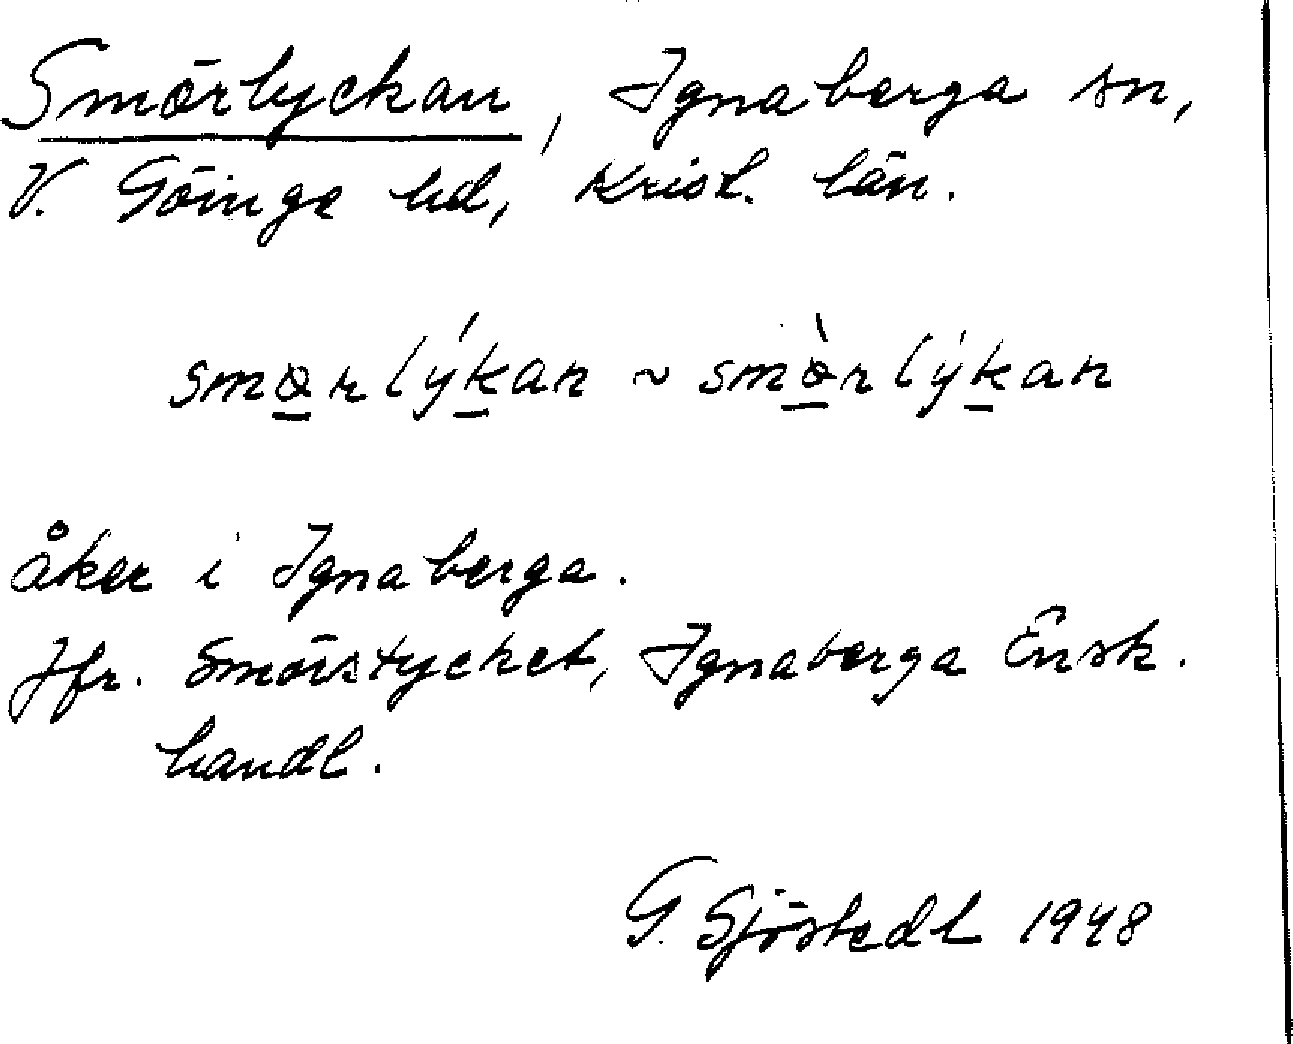 Smörlyckan, Ignaberga sn,
V. Göinge hd, Krist. län.
smørlýkan ~ smø̀rlýkan
åker i Ignaberga.
Jfr. Smörstycket, Ignaberga Ensk.
handl.
G. Sjöstedt 1948